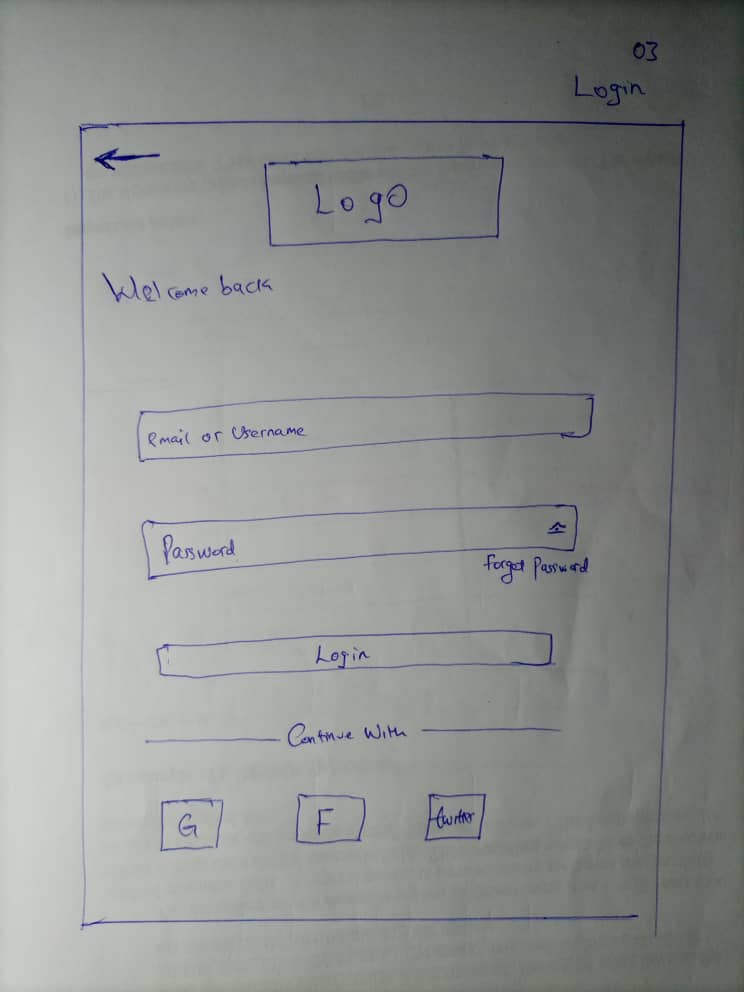 03
Login
LogO
Welcome back
email or Username
Password
Forgot Password
Login
Continue With
G
F
twitter